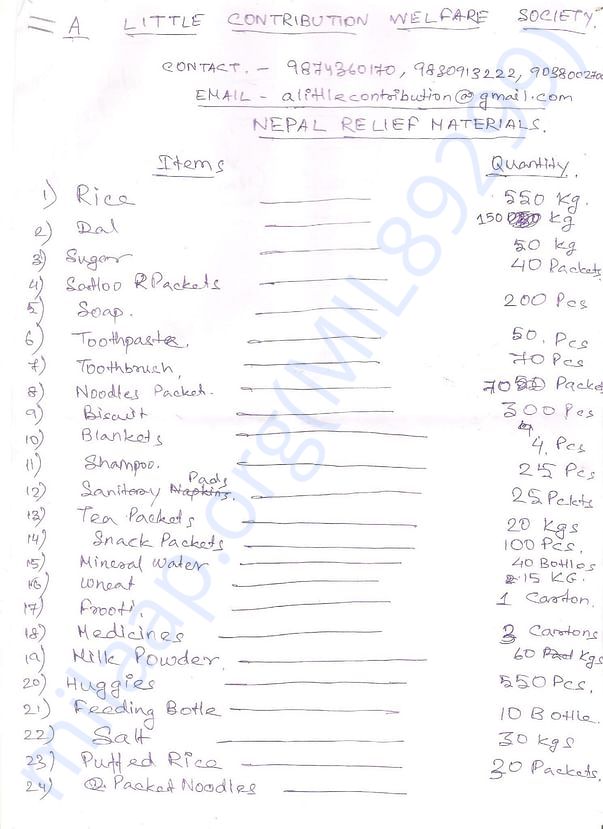 A LITTLE CONTRIBUTION WELFARE SOCIETY.
CONTACT. - 9874360170, 9830913222, 9038002700
EMAIL - alittlecontribution@gmail.com
NEPAL RELIEF MATERIALS.
Items Quantity.
1) Rice 550 Kg.
2) Dal 150 kg
3) Sugar 50 kg
4) Sattoo Packets 40 Packets
5) Soap. 200 Pcs
6) Toothpaste. 50. Pcs
7) Toothbrush, 70 Pcs
8) Noodles Packet. 70 Packe
9) Biscuit 300 Pcs
10) Blankets 4. Pcs
11) Shampoo. 25 Pcs
12) Sanitory Pads 25 Pckts
13) Tea Packets 20 Kgs
14) Snack Packets 100 Pcs.
15) Mineral Water 40 Bottles
16) Wheat 15 KG.
17) Frooti. 1 Carton.
18) Medicines 3 Cartons
19) Milk Powder. 60 Kgs
20) Huggies 550 Pcs.
21) Feeding Botle 10 Botlle.
22) Salt 30 kgs
23) Puffed Rice 30 Packets.
24) Packet Noodles
mileaap.org(MIL89239)